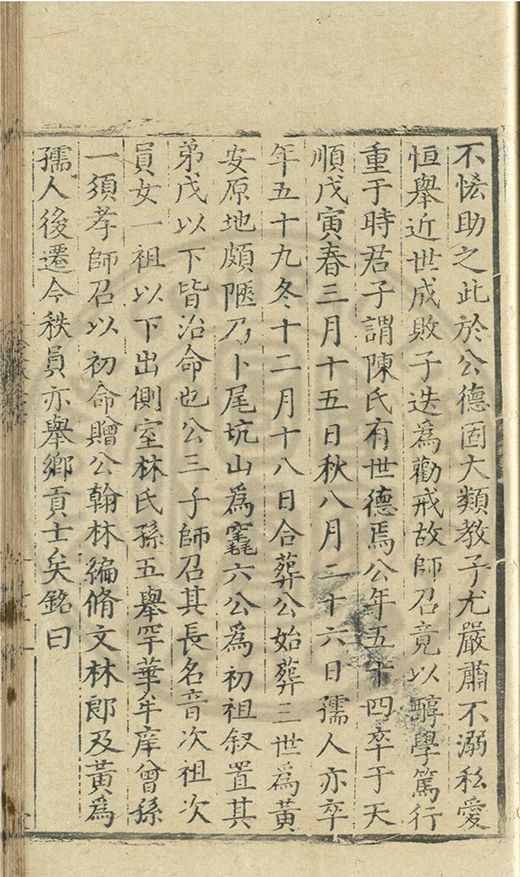 不恡助之此於公德固大類教子尤嚴肅不溺私愛
恒舉近世成敗子迭爲勸戒故師召竟以醇學篤行
重于時君子謂陳氏有世德焉公年五十四卒于天
順戊寅春三月十五日秋八月二十六日孺人亦卒
年五十九冬十二月十八日合葬公始葬三世爲黄
安原地頗陿乃卜尾坑山爲窀六公爲初祖叙置其
弟戊以下皆治命也公三子師召其長名音次祖次
員女一祖以下出側室林氏孫五舉罕華牟庠曾孫
一須孝師召以初命贈公翰林編脩文林郎及黄爲
孺人後遷今秩員亦舉鄉貢士矣銘曰